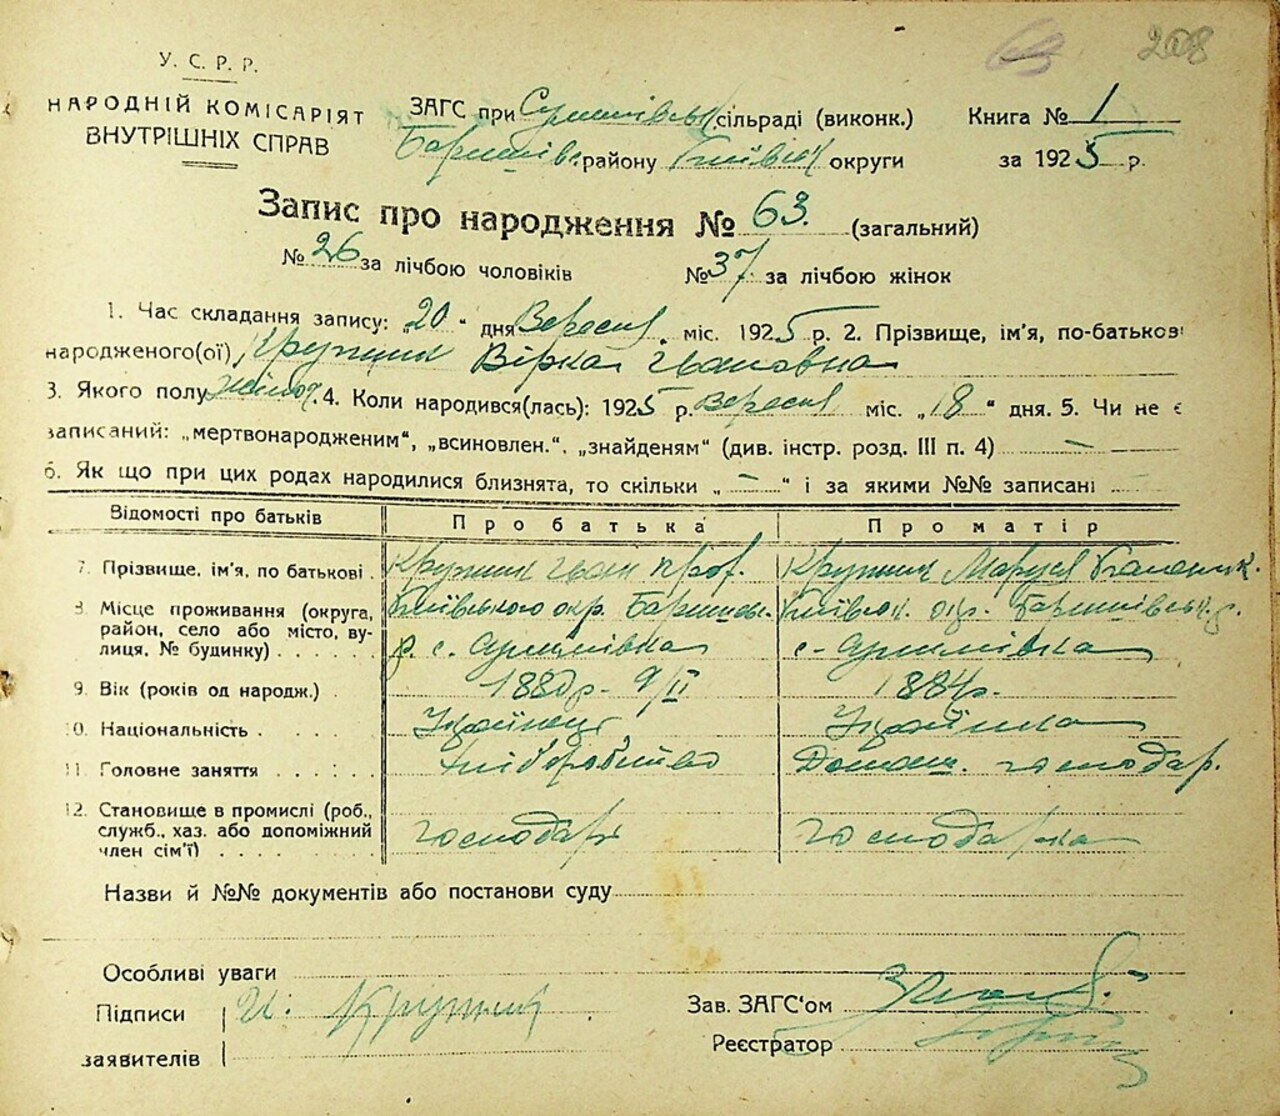 208
У. С. Р. Р.
НАРОДНІЙ КОМІСАРІЯТ
ВНУТРІШНІХ СПРАВ
ЗАГС при сільраді (виконк.)
району округи
Книга № 1
за 1925 р.
Запис про народження № 63. (загальний)
№ 26 за лічбою чоловіків № 37 за лічбою жінок
1. Час складання запису: „20“ дня Вересня міс. 1925 р. 2. Прізвище, ім'я, по-батькові
народженого(ої) Вірка Івановна
3. Якого полу жіноч. 4. Коли народився(лась): 1925 р. Вересня міс. „18“ дня. 5. Чи не є
записаний: „мертвонародженим“, „всиновлен.“, „знайденям“ (див. інстр. розд. III п. 4) —
6. Як що при цих родах народилися близнята, то скільки „—“ і за якими №№ записані —
Відомості про батьків Про батька Про матір
7. Прізвище, ім'я, по батькові . Іван Маруся
8. Місце проживання (округа, Київського окр. Київськ. окр.
район, село або місто, ву-
лиця, № будинку) . . . . . р. с. с.
9. Вік (років од народж.) . 1880 р. 9/II 1884 р.
10. Національність . . . . . Українець Українка
11. Головне заняття . . . . : Хліборобство Домашн. господар.
12. Становище в промислі (роб.,
служб., хаз. або допоміжний
член сім'ї) . . . . . . . господарь господарка
Назви й №№ документів або постанови суду
Особливі уваги
Підписи И.
заявителів
Зав. ЗАГС'ом
Реєстратор